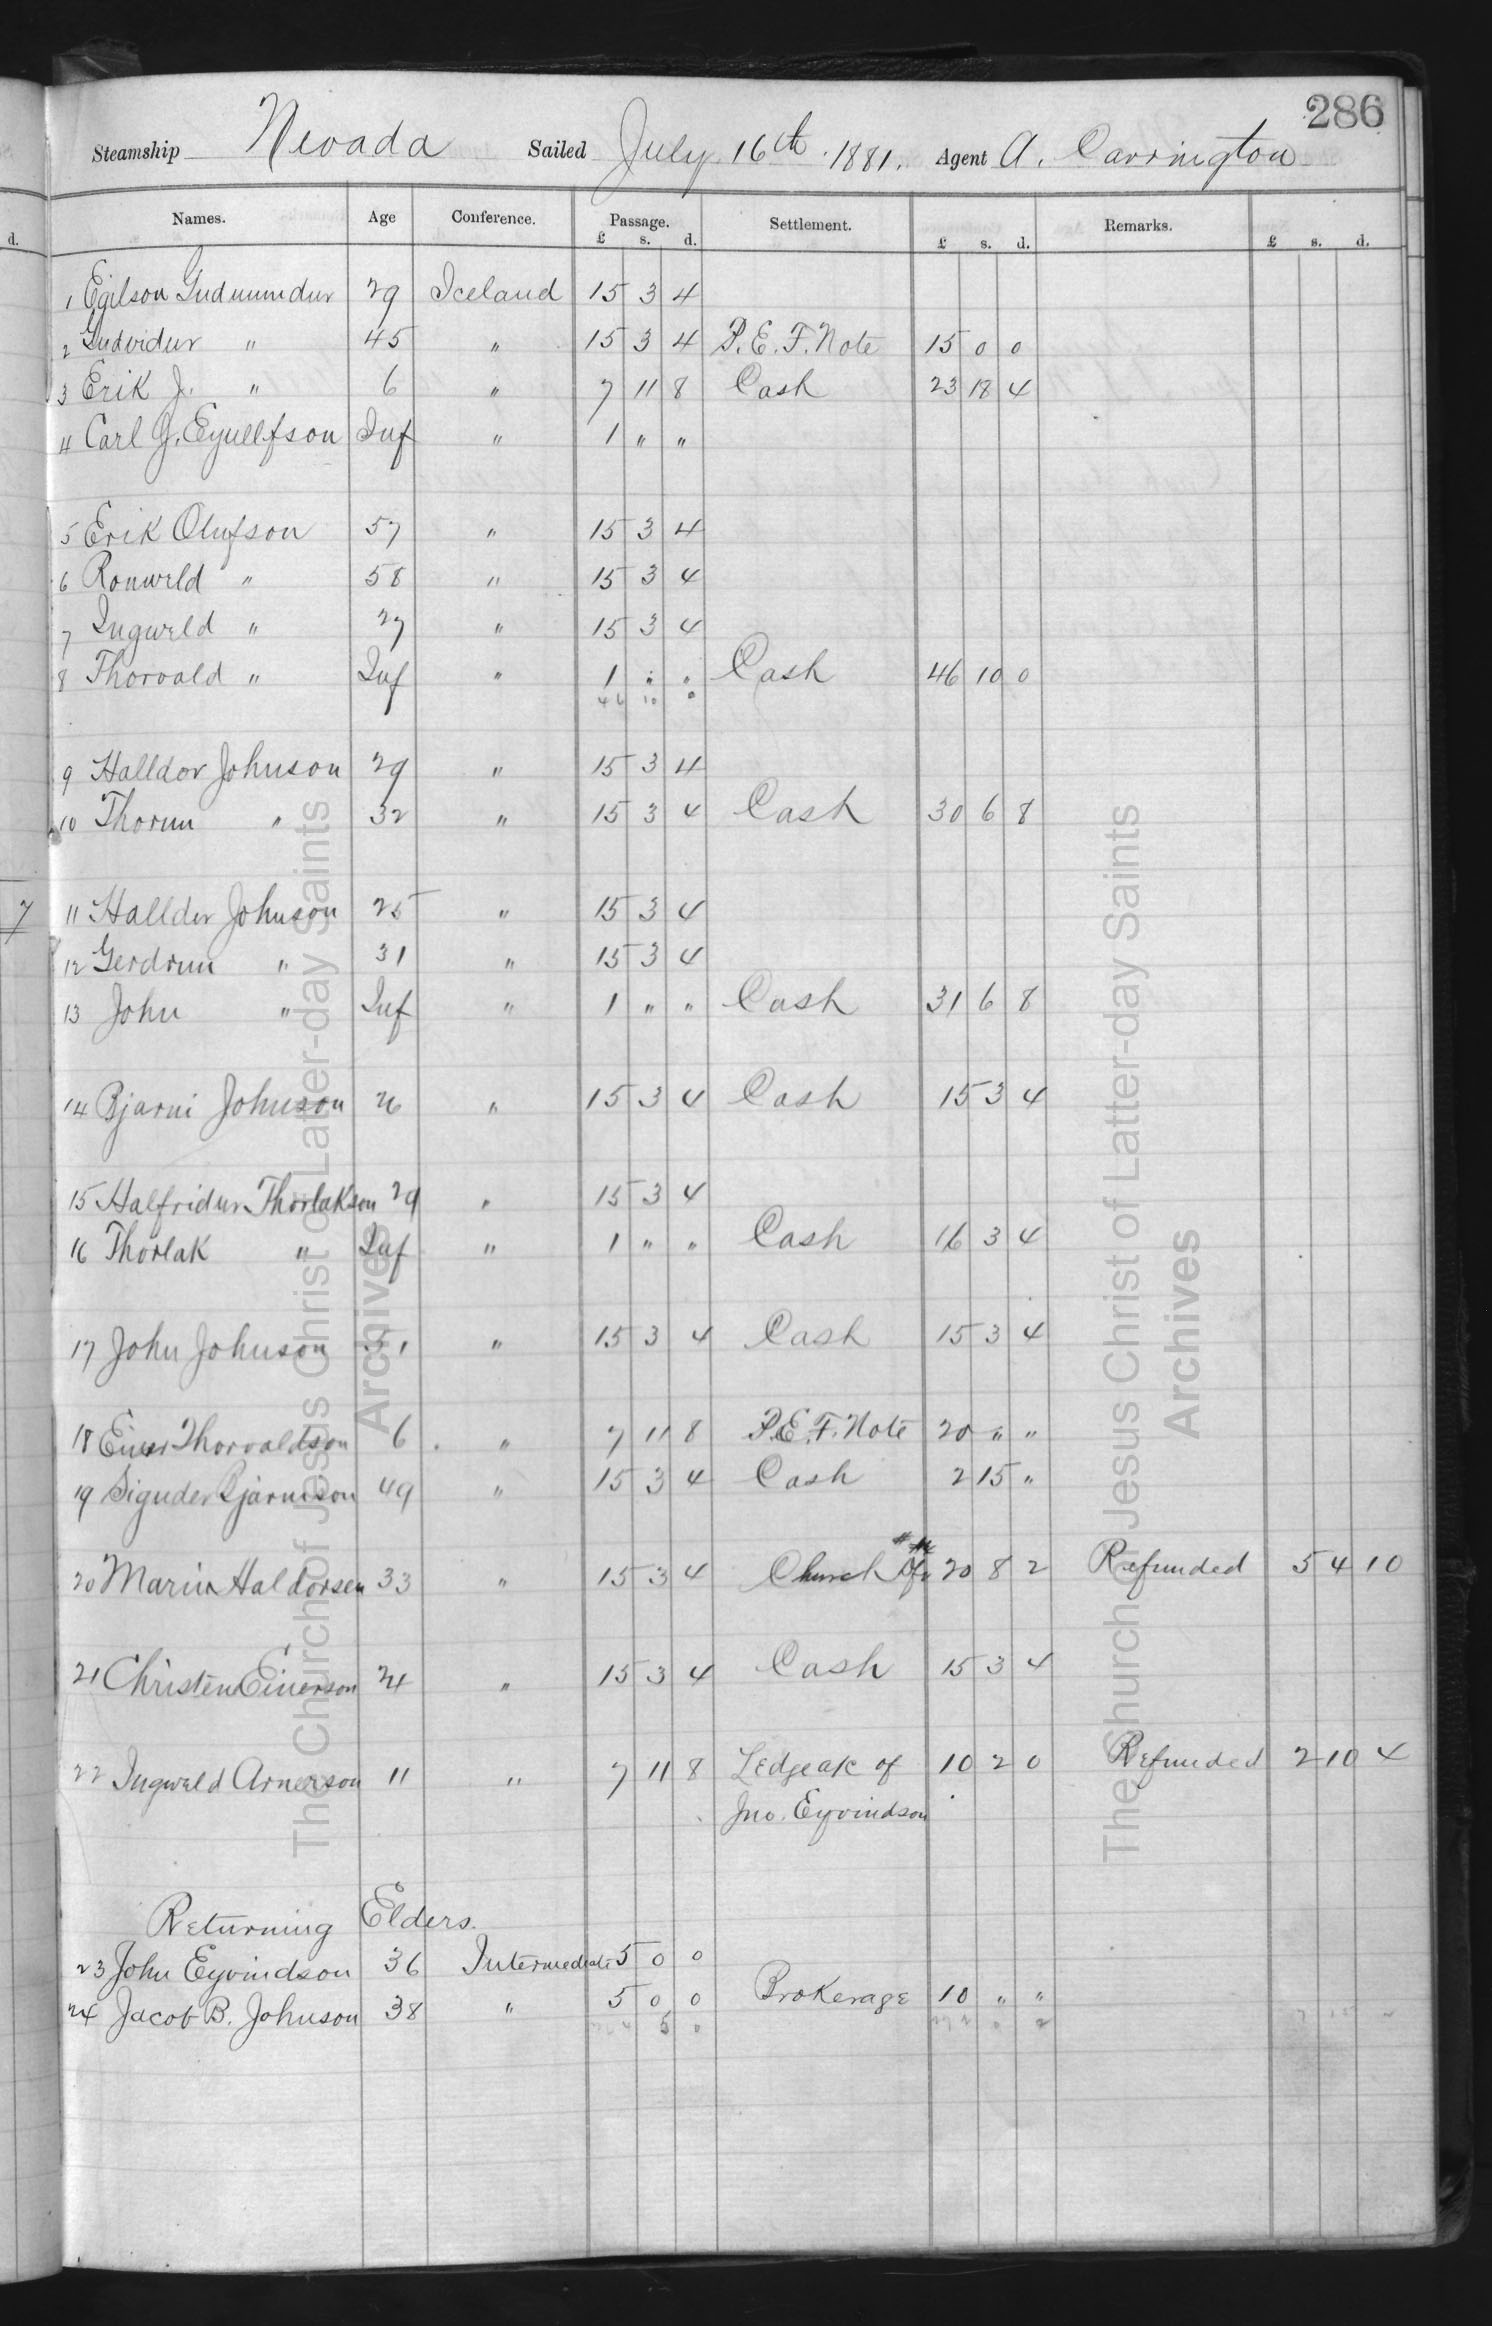 286
Steamship Nevada Sailed July 16th 1881. Agent A. Carrington
Names. Age Conference. Passage. Settlement. Remarks.
£ s. d. £ s. d. £ s. d.
d.
1 Egilson Gudmundur 29 Iceland 15 3 4
2 Gudvidur " 45 " 15 3 4 P.E.F. Note 15 0 0
3 Erik J. " 6 " 7 11 8 Cash 23 18 4
4 Carl G. Eyullfson Inf " 1 " "
5 Erik Olufson 57 " 15 3 4
6 Ronweld " 58 " 15 3 4
7 Ingweld " 27 " 15 3 4
8 Thorvald " Inf " 1 " " Cash 46 10 0
46 10 0
9 Halldor Johnson 29 " 15 3 4
10 Thorun " 32 " 15 3 4 Cash 30 6 8
7 11 Halldor Johnson 25 " 15 3 4
12 Gerdrun " 31 " 15 3 4
13 John " Inf " 1 " " Cash 31 6 8
14 Bjarni Johnson 26 " 15 3 4 Cash 15 3 4
15 Halfridur Thorlakson 29 " 15 3 4
16 Thorlak " Inf " 1 " " Cash 16 3 4
17 John Johnson 51 " 15 3 4 Cash 15 3 4
18 Einer Thorvaldson 6 " 7 11 8 P.E.F. Note 20 " "
19 Siguder Bjarnison 49 " 15 3 4 Cash 2 15 "
20 Maria Haldorsen 33 " 15 3 4 Church 20 8 2 Refunded 5 4 10
21 Christen Einerson 24 " 15 3 4 Cash 15 3 4
22 Ingweld Arnerson 11 " 7 11 8 Ledge a/c of 10 2 0 Refunded 2 10 4
Jno. Eyvindson
Returning Elders.
23 John Eyvindson 36 Intermediate 5 0 0
24 Jacob B. Johnson 38 " 5 0 0 Brokerage 10 " "
The Church of Jesus Christ of Latter-day Saints
Archives
The Church of Jesus Christ of Latter-day Saints
Archives